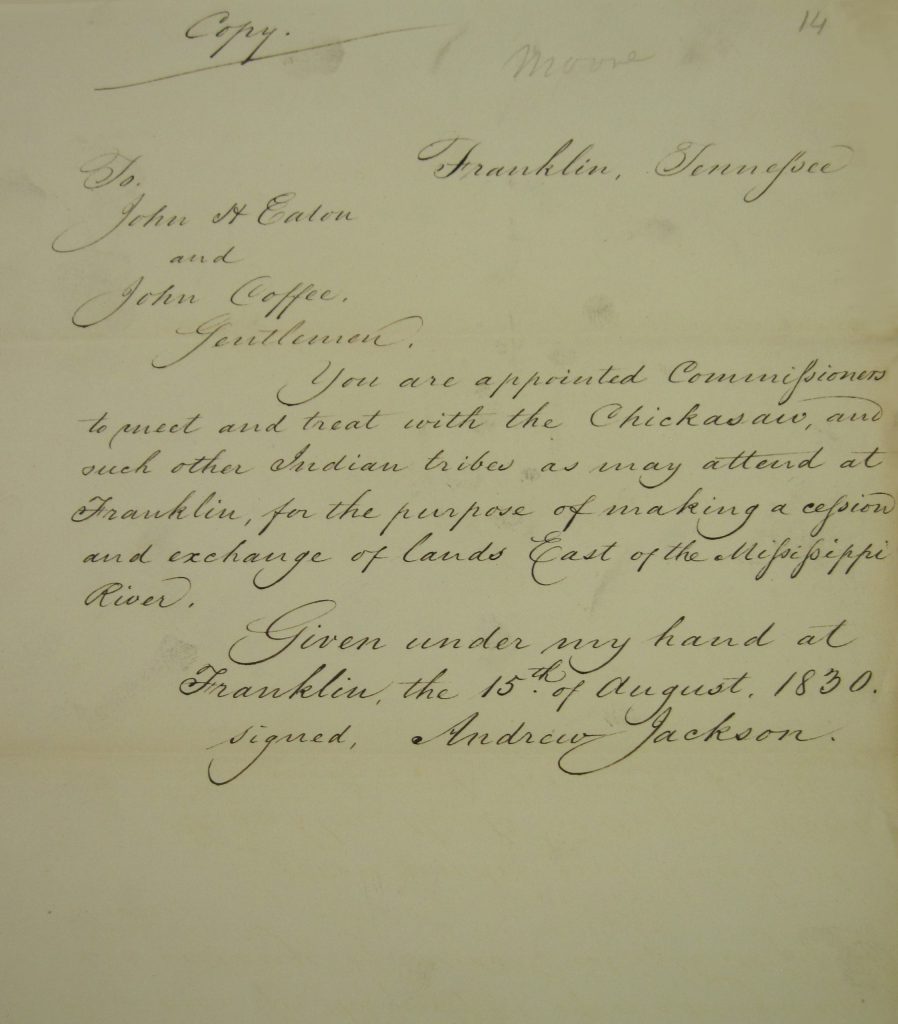 Copy.
14
Moore
Franklin, Tenneſsee
To.
John H Eaton
and
John Coffee.
Gentlemen.
You are appointed Commiſsioners
to meet and treat with the Chickasaw, and
such other Indian tribes as may attend at
Franklin, for the purpose of making a ceſsion
and exchange of lands East of the Miſsiſsippi
River.
Given under my hand at
Franklin, the 15th. of August. 1830.
signed, Andrew Jackson.